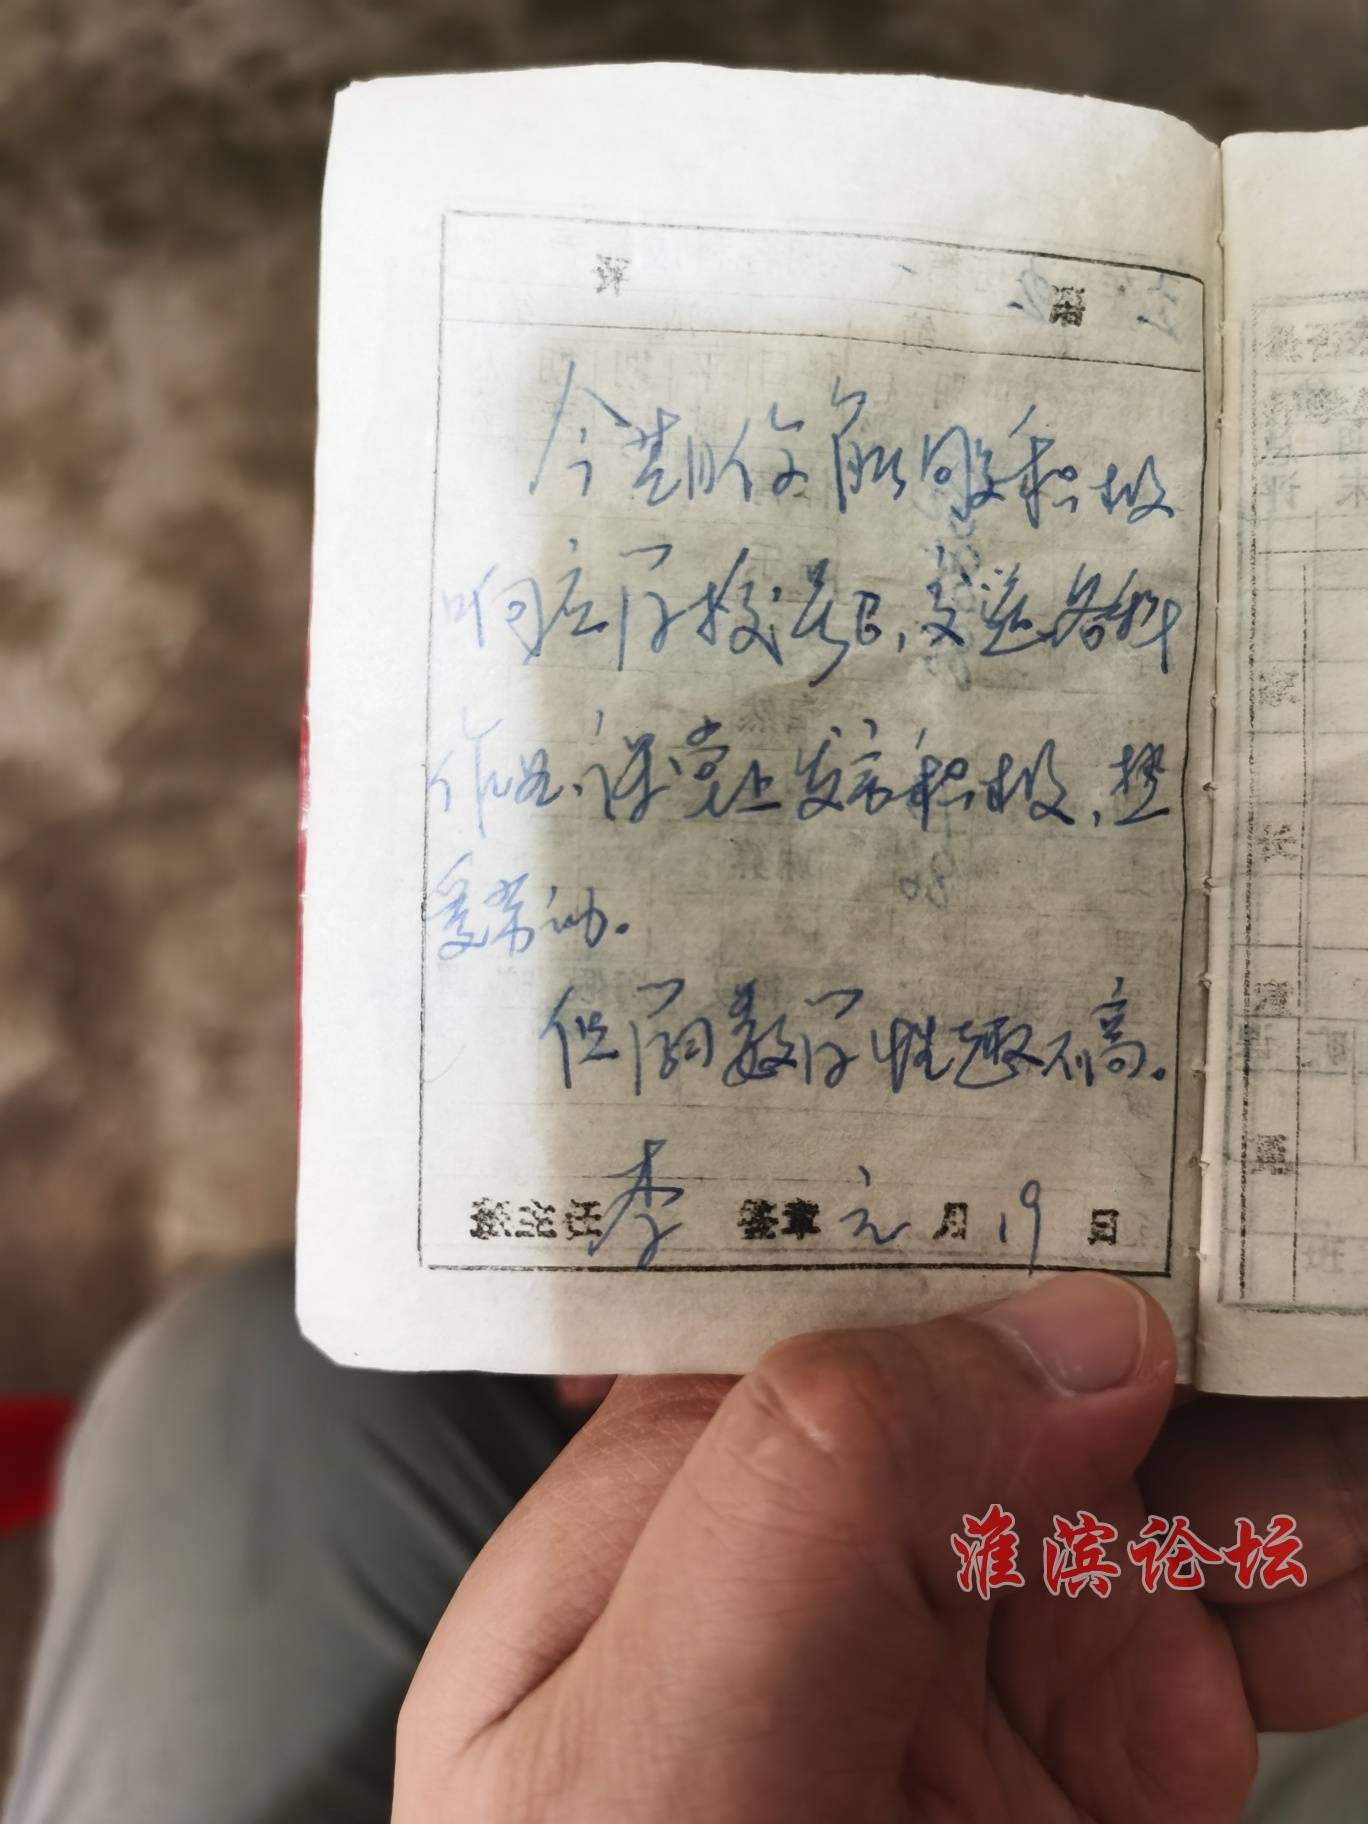 评语
今期你能够积极
响应学校号召,交送各种
作品,课堂上发言积极,热
爱劳动。
但学习数学性趣不高。
班主任 李 签章 元月19日
淮滨论坛